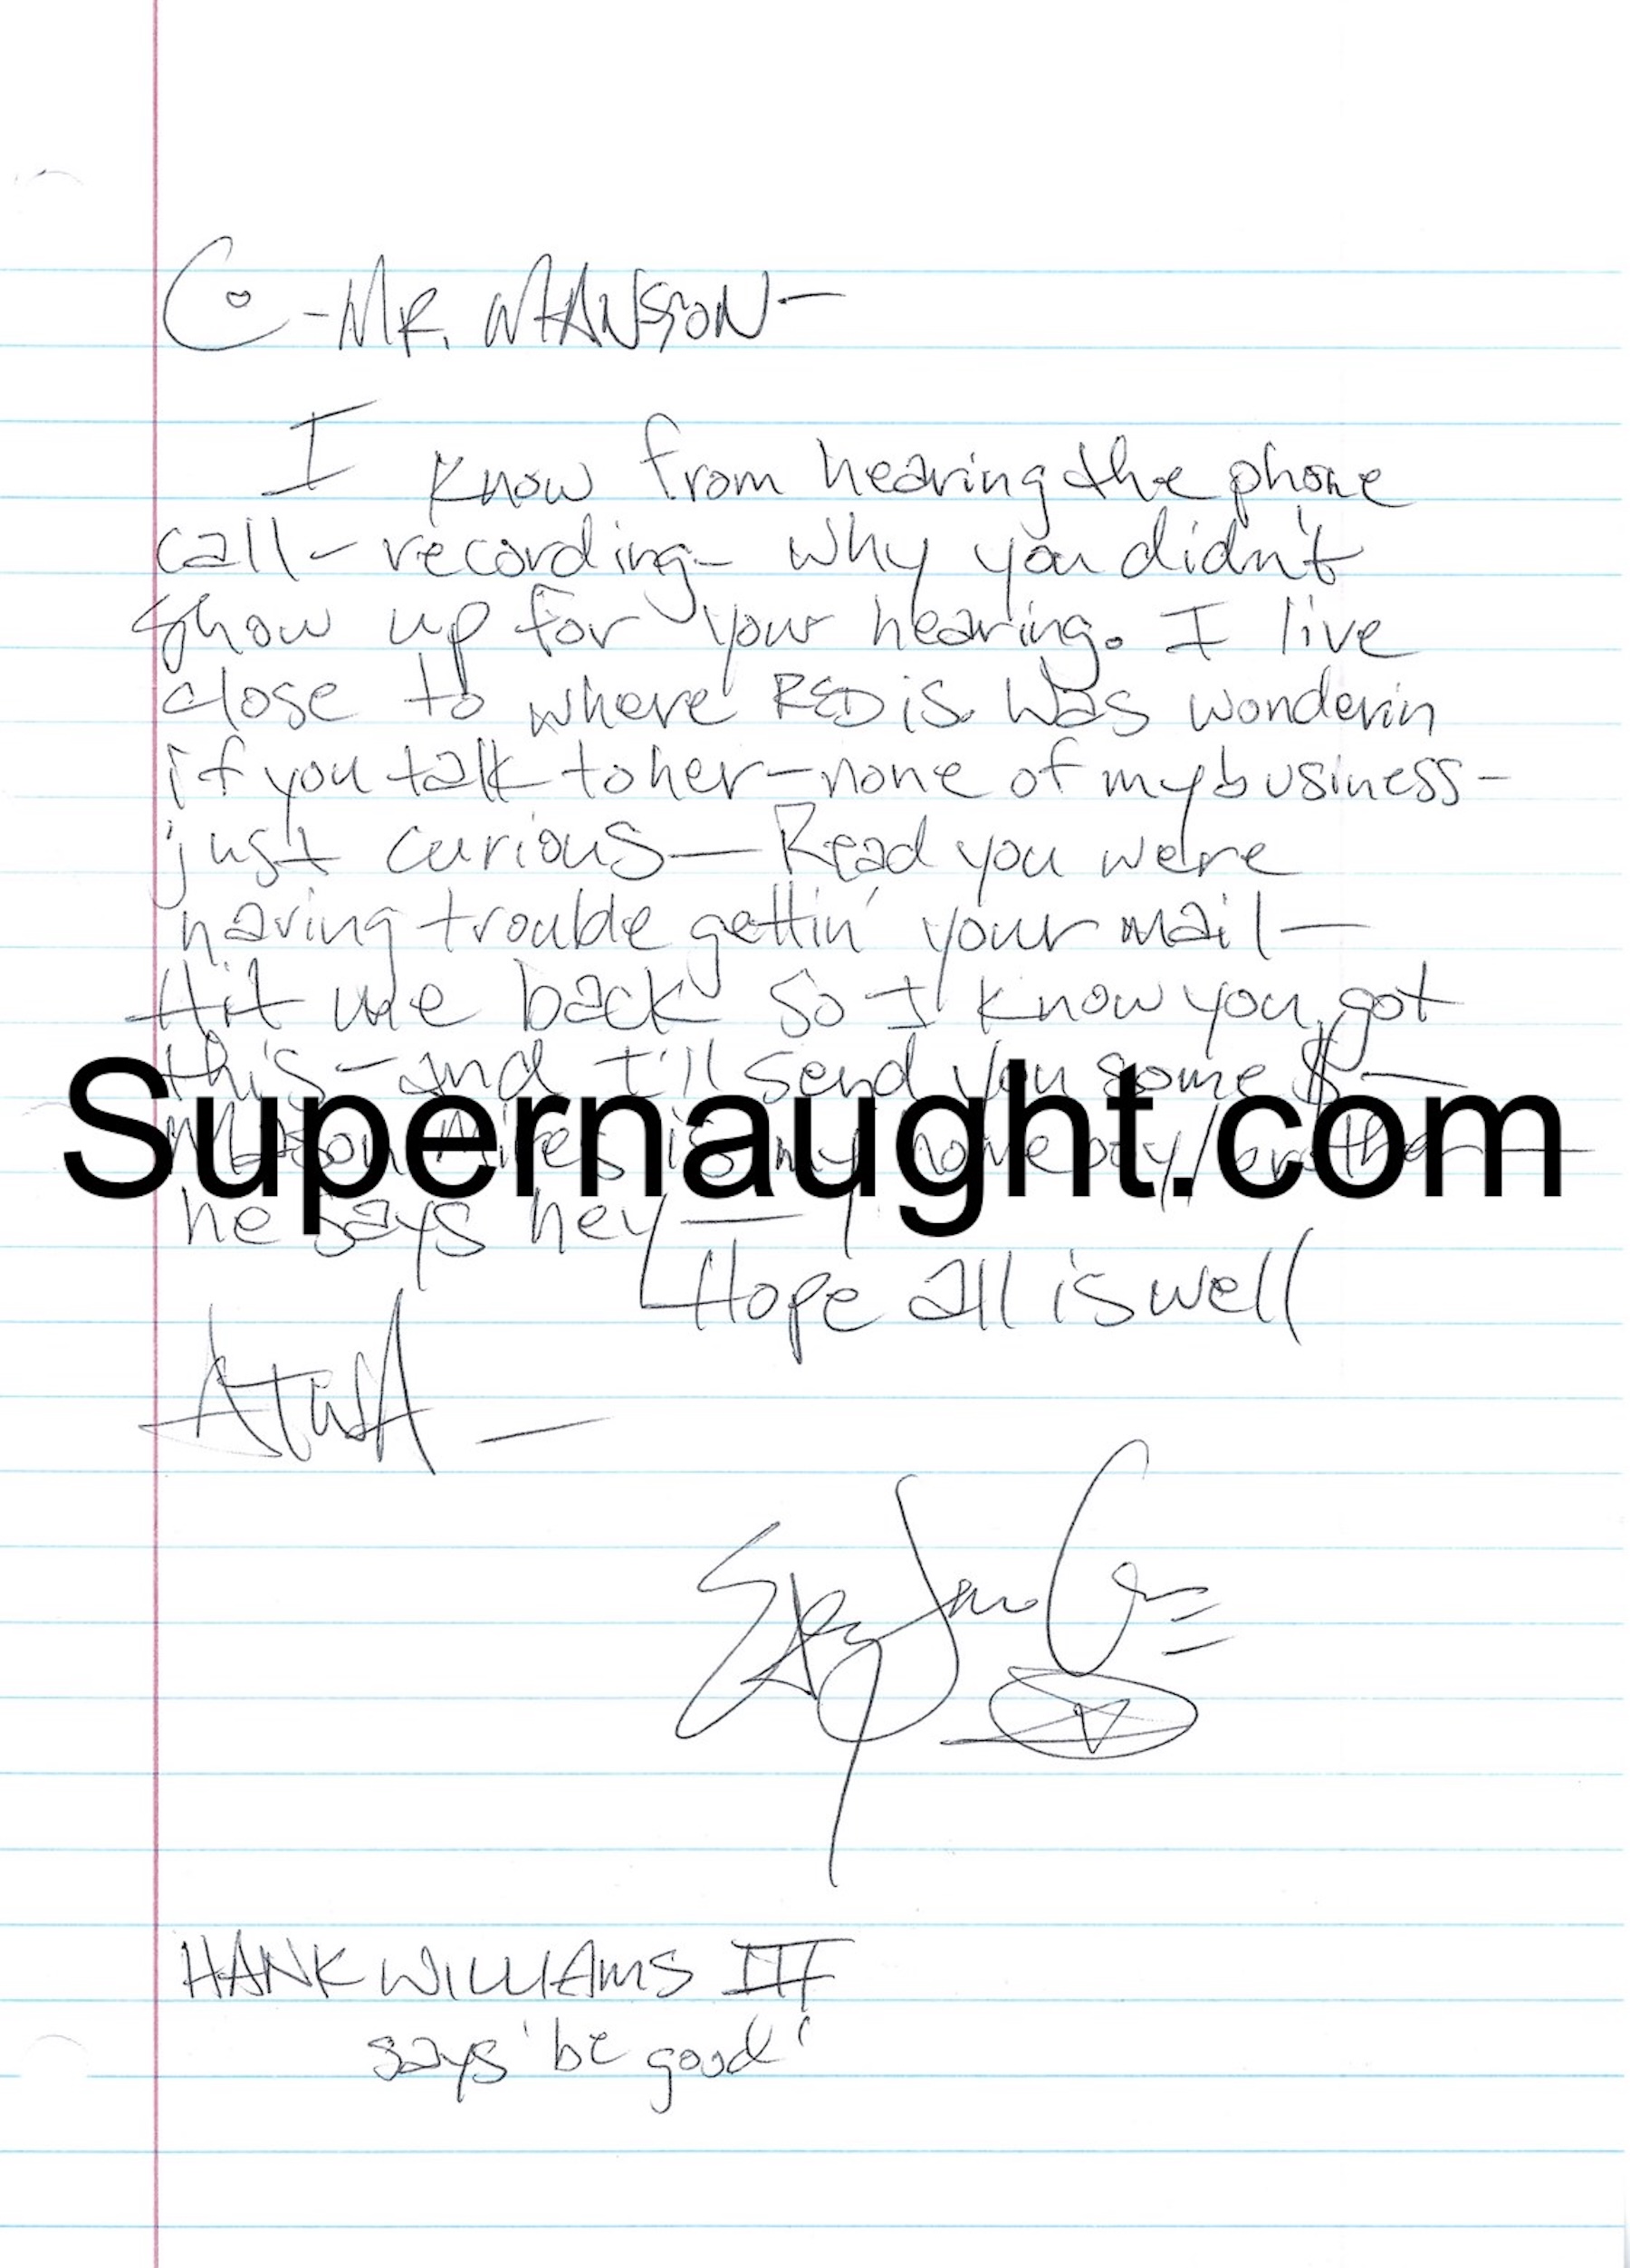 C -MR. MANSON-
I know from hearing the phone
call- recording- why you didn't
show up for your hearing. I live
close to where RED is. Was wonderin
if you talk to her-none of my business-
just curious- Read you were
having trouble gettin' your mail-
Hit me back so I know you got
this-and I'll send you some $-
is my homeboy/brother-
Supernaught.com
he says hey-
Hope all is well
ATWA-
HANK WILLIAMS III
says 'be good'